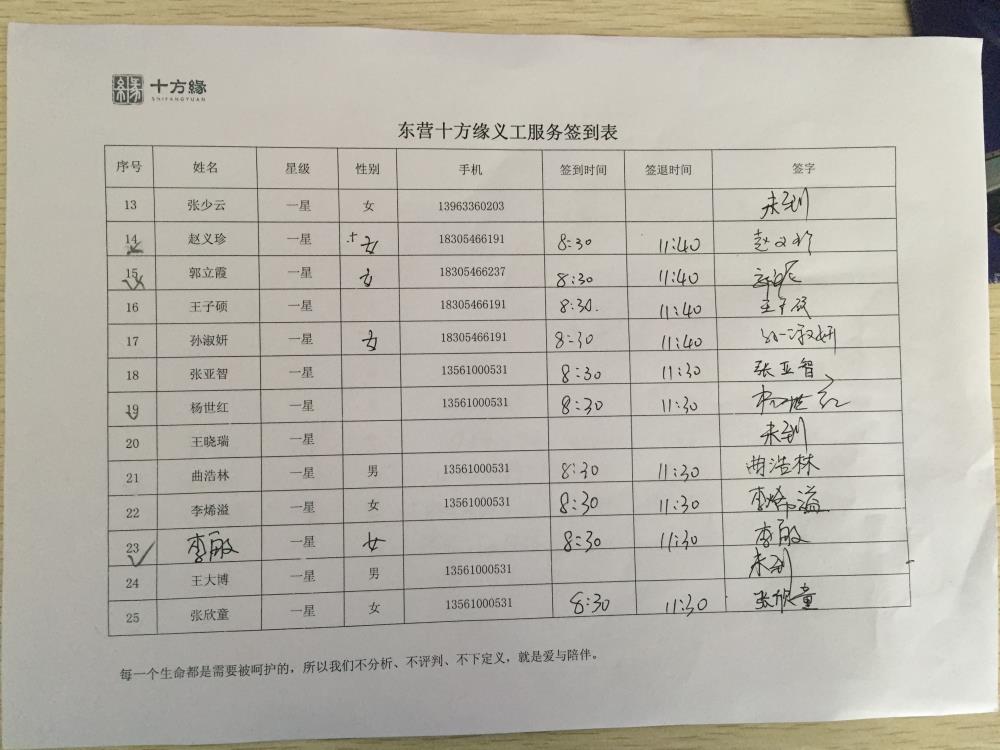 缘 十方缘
SHIFANGYUAN
东营十方缘义工服务签到表
序号 姓名 星级 性别 手机 签到时间 签退时间 签字
13 张少云 一星 女 13963360203 未到
14 赵义珍 一星 女 18305466191 8:30 11:40 赵义珍
15 郭立霞 一星 女 18305466237 8:30 11:40
16 王子硕 一星 18305466191 8:30. 11:40 王子硕
17 孙淑妍 一星 女 18305466191 8:30 11:40 孙淑妍
18 张亚智 一星 13561000531 8:30 11:30 张亚智
19 杨世红 一星 13561000531 8:30 11:30 杨世红
20 王晓瑞 一星 未到
21 曲浩林 一星 男 13561000531 8:30 11:30 曲浩林
22 李烯溢 一星 女 13561000531 8:30 11:30 李烯溢
23 李敏 一星 女 8:30 11:30 李敏
24 王大博 一星 男 13561000531 未到
25 张欣童 一星 女 13561000531 8:30 11:30 张欣童
每一个生命都是需要被呵护的，所以我们不分析、不评判、不下定义，就是爱与陪伴。